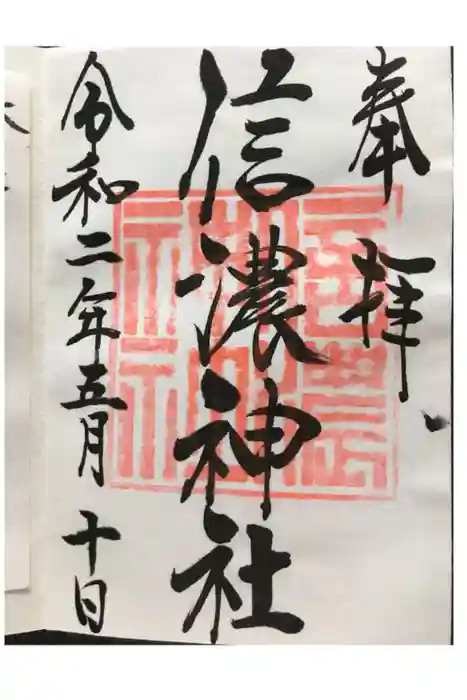 奉拝
信濃神社
令和二年五月十日